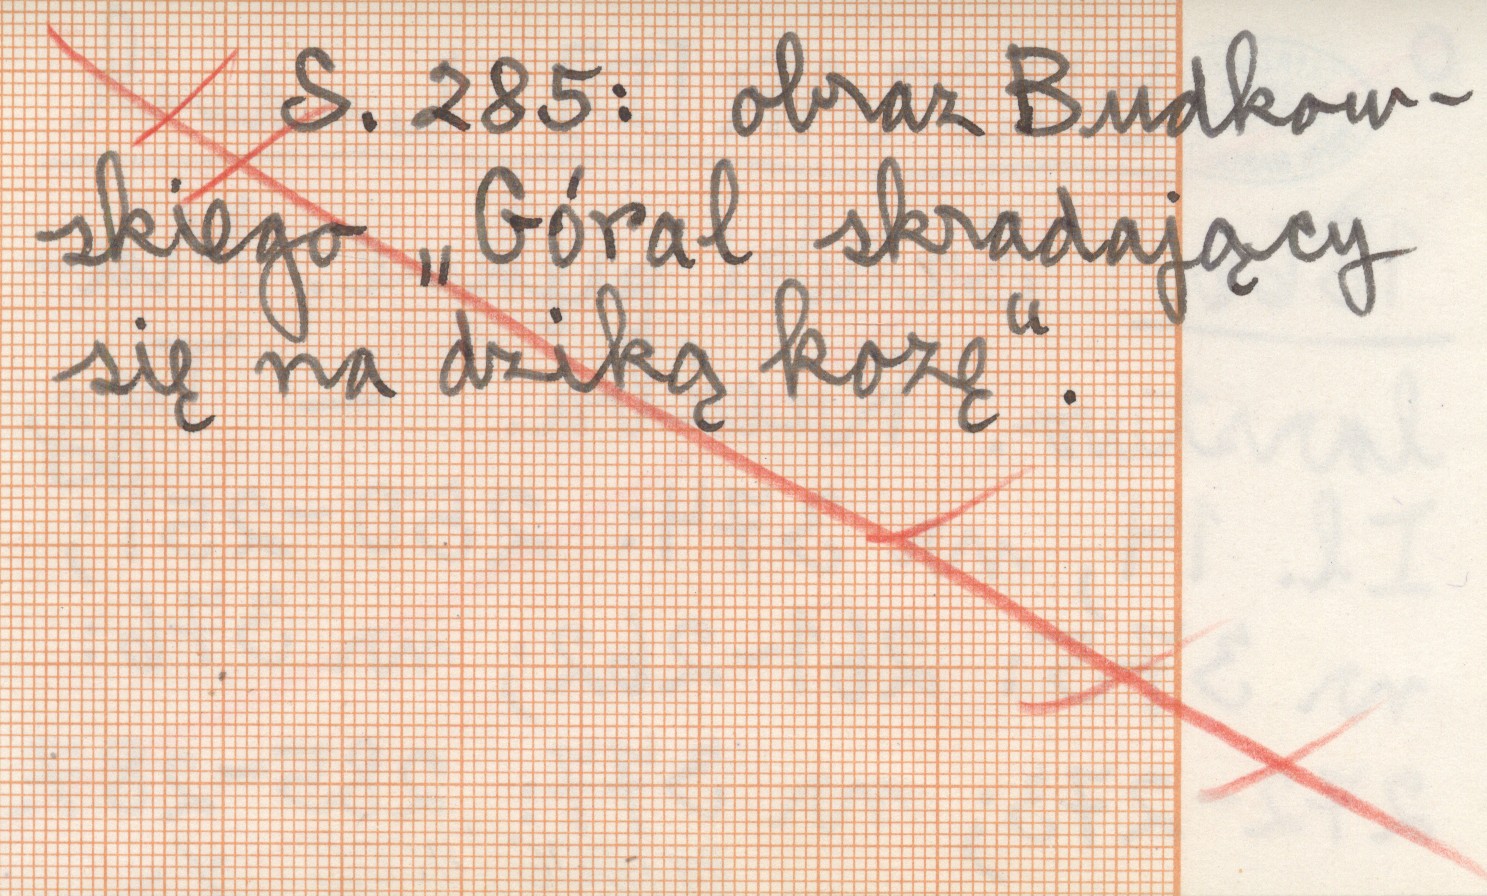 S. 285: obraz Budkow-
skiego „Góral skradający
się na dziką kozę“.